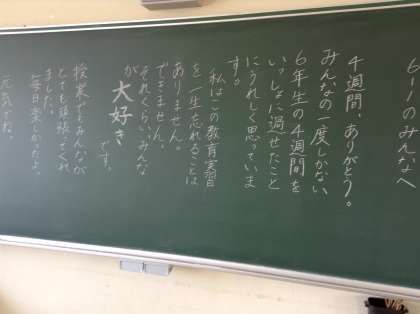 6-1のみんなへ
4週間、ありがとう。
みんなの一度しかない
6年生の4週間を
いっしょに過せたこと
にうれしく思っていま
す。
私はこの教育実習
を一生忘れることは
ありません。
できません。
それくらい、みんな
が
大好きです。
授業でもみんなが
とても頑張ってくれ
ました。
毎日楽しかったよ。
元気でね。